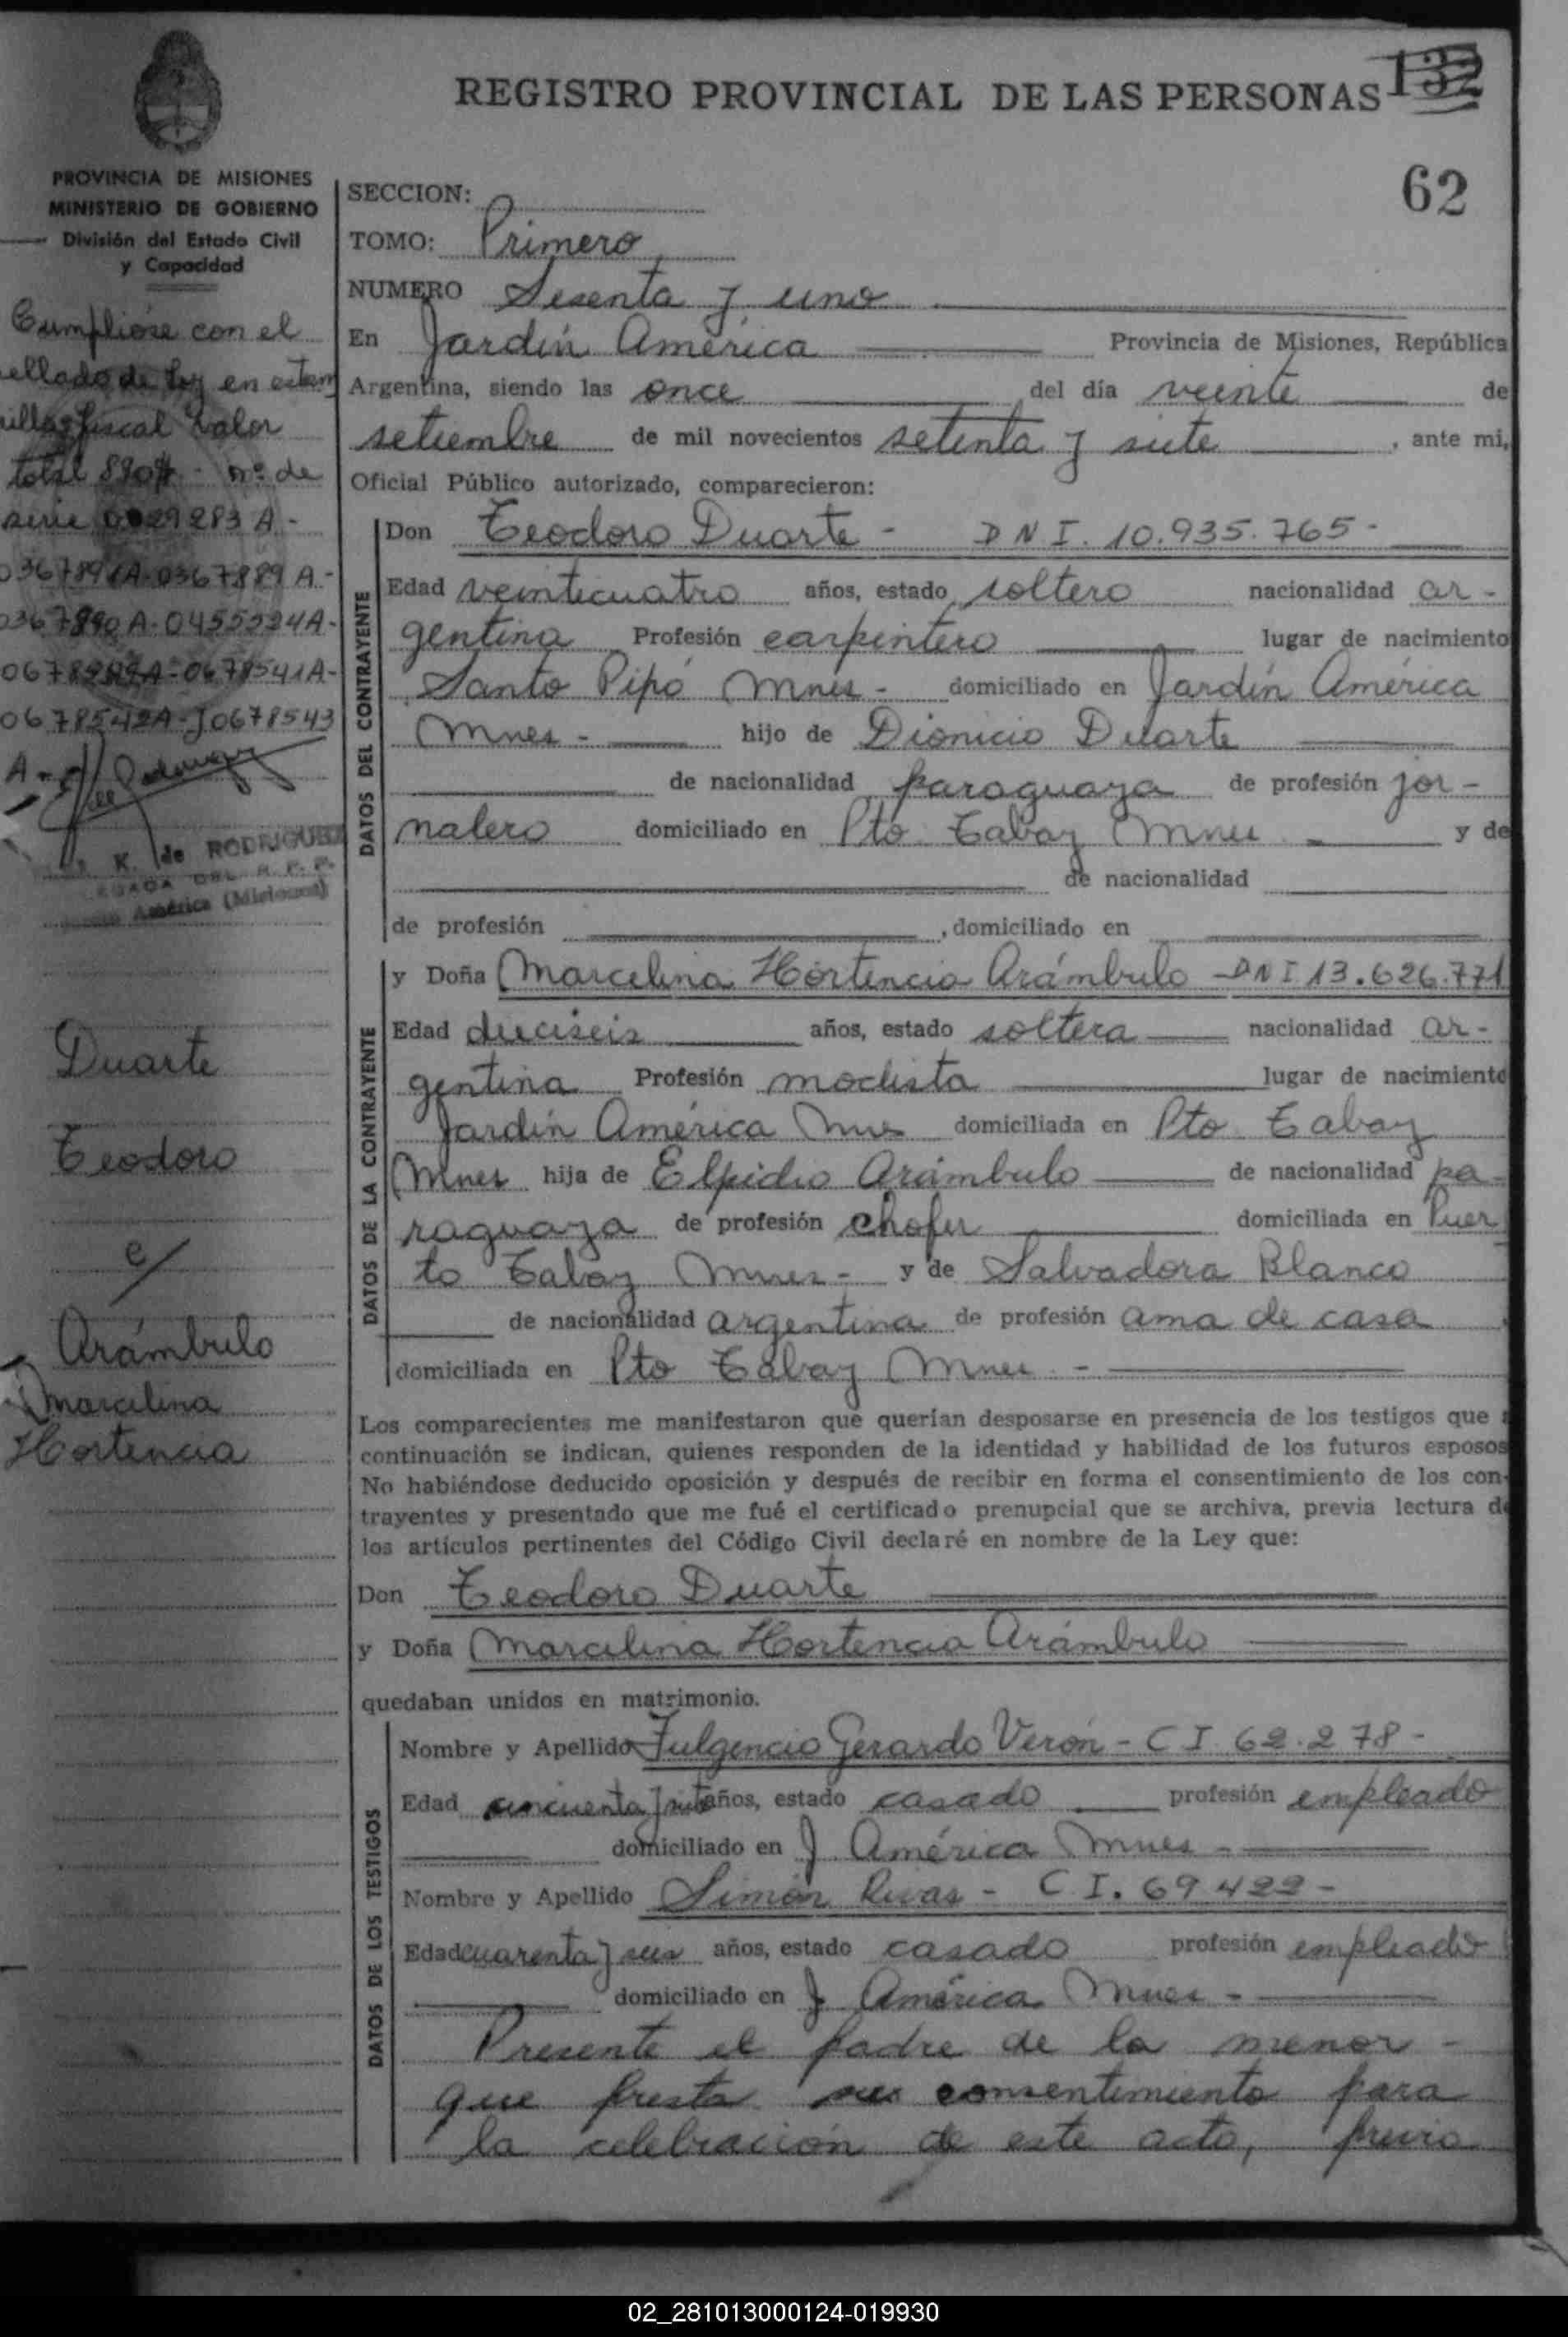 REGISTRO PROVINCIAL DE LAS PERSONAS 132
62
PROVINCIA DE MISIONES
MINISTERIO DE GOBIERNO
División del Estado Civil
y Capacidad
Cumplióse con el
sellado de ley en estam
pilla fiscal valor
total 890 $ - nº de
serie 0029283 A -
0367889 A -
0367890 A - 0455524 A -
0678541 A -
0678542 A - J 0678543
A -
K. de RODRIGUEZ
DEL R. P. P.
América (Misiones)
Duarte
Teodoro
c/
Arámbulo
Marcelina
Hortencia
SECCION:
TOMO: Primero
NUMERO Sesenta y uno
En Jardín América Provincia de Misiones, República
Argentina, siendo las once del día veinte de
setiembre de mil novecientos setenta y siete , ante mi,
Oficial Público autorizado, comparecieron:
DATOS DEL CONTRAYENTE
Don Teodoro Duarte - DNI. 10.935.765 -
Edad veinticuatro años, estado soltero nacionalidad ar-
gentina Profesión carpintero lugar de nacimiento
Santo Pipó Mnes - domiciliado en Jardín América
Mnes - hijo de Dionicio Duarte
de nacionalidad paraguaya de profesión jor-
nalero domiciliado en Pto Tabay Mnes y de
de nacionalidad
de profesión , domiciliado en
DATOS DE LA CONTRAYENTE
y Doña Marcelina Hortencia Arámbulo - DNI 13.626.771
Edad dieciseis años, estado soltera nacionalidad ar-
gentina Profesión modista lugar de nacimiento
Jardín América Mnes domiciliada en Pto Tabay
Mnes hija de Elpidio Arámbulo de nacionalidad pa-
raguaya de profesión chofer domiciliada en Puer
to Tabay Mnes - y de Salvadora Blanco
de nacionalidad argentina de profesión ama de casa
domiciliada en Pto Tabay Mnes -
Los comparecientes me manifestaron que querían desposarse en presencia de los testigos que a
continuación se indican, quienes responden de la identidad y habilidad de los futuros esposos
No habiéndose deducido oposición y después de recibir en forma el consentimiento de los con-
trayentes y presentado que me fué el certificado prenupcial que se archiva, previa lectura de
los artículos pertinentes del Código Civil declaré en nombre de la Ley que:
Don Teodoro Duarte
y Doña Marcelina Hortencia Arámbulo
quedaban unidos en matrimonio.
DATOS DE LOS TESTIGOS
Nombre y Apellido Fulgencio Gerardo Verón - C I 62.278 -
Edad cincuenta y siete años, estado casado profesión empleado
domiciliado en J América Mnes -
Nombre y Apellido Simón Rivas - C I. 69422 -
Edad cuarenta y seis años, estado casado profesión empleado
domiciliado en J América Mnes -
Presente el padre de la menor -
que presta su consentimiento para
la celebración de este acto, previa
02_281013000124-019930